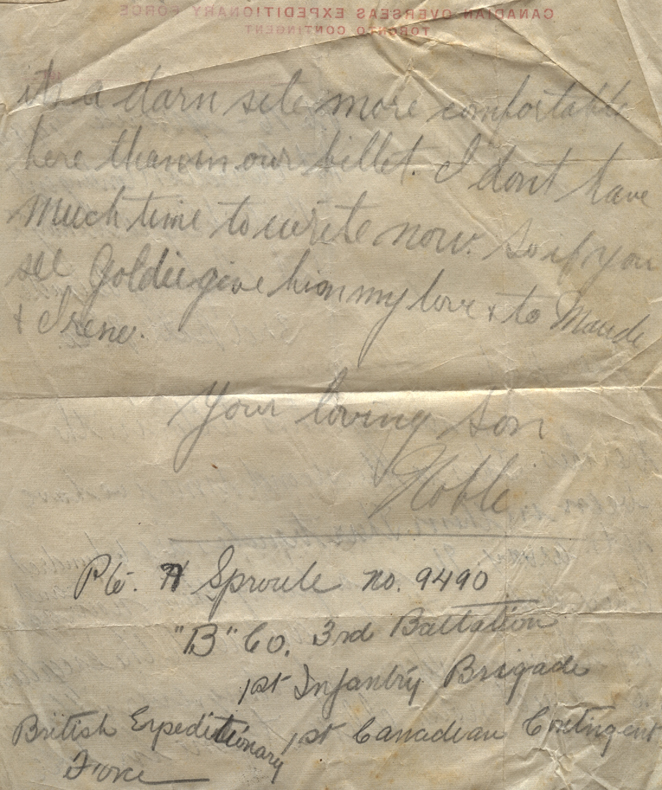 CANADIAN OVERSEAS EXPEDITIONARY FORCE
TORONTO CONTINGENT
it's a darn site more comfortable
here than in our billet. I don't have
much time to write now. So if you
see Goldie give him my love & to Maude
& Irene.
Your loving son
Noble
Pte. N Sproule no. 9490
"B" Co. 3rd Battalion
1st Infantry Brigade
1st Canadian Contingent
British Expeditionary
Force